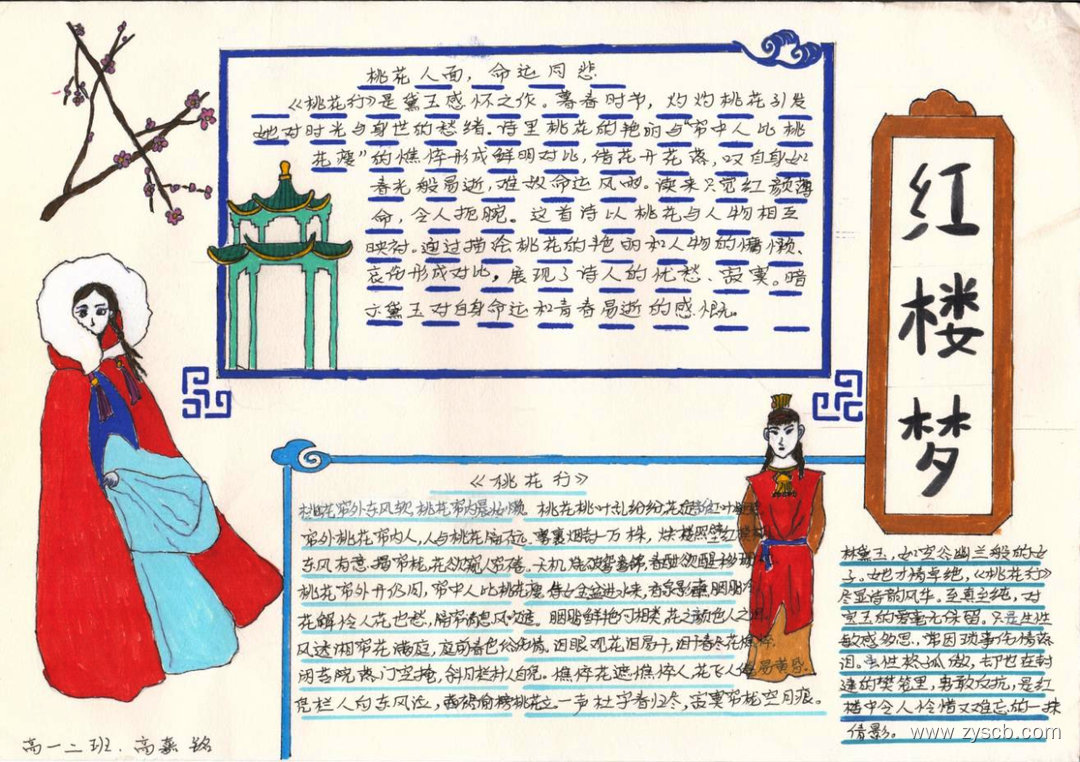 桃花人面，命运同悲
《桃花行》是黛玉感怀之作。暮春时节，灼灼桃花引发
她对时光与身世的愁绪。诗里桃花的艳丽与“帘中人比桃
花瘦”的憔悴形成鲜明对比，借花开花落，叹自身如
春光般易逝，难敌命运风雨。读来只觉红颜薄
命，令人扼腕。这首诗以桃花与人物相互
映衬。通过描绘桃花的艳丽和人物的慵懒、
哀伤形成对比，展现了诗人的忧愁、寂寞。暗
示黛玉对自身命运和青春易逝的感慨。
红楼梦
《桃花行》
桃花帘外东风软，桃花帘内晨妆懒
帘外桃花帘内人，人与桃花隔不远。
东风有意揭帘栊，花欲窥人帘不卷。
桃花帘外开仍旧，帘中人比桃花瘦
花解怜人花也愁，隔帘消息风吹透。
风透湘帘花满庭，庭前春色倍伤情
闲苔院落门空掩，斜日栏杆人自凭。
凭栏人向东风泣，茜裙偷傍桃花立。
桃花桃叶乱纷纷，花绽新红叶
雾裹烟封一万株，烘楼照壁红模
天机烧破鸳鸯锦，春酣欲醒
侍女金盆进水来，香泉影蘸胭脂冷
胭脂鲜艳何相类，花之颜色人之泪。
泪眼观花泪易干，泪干春尽花憔悴
憔悴花遮憔悴人，花飞人倦易黄昏。
一声杜宇春归尽，寂寞帘栊空月痕。
林黛玉，如空谷幽兰般的女
子。她才情卓绝，《桃花行》
尽显诗韵风华，至真至纯，对
宝玉的爱毫无保留。只是生性
敏感多思，常因琐事伤情落
泪。虽性格孤傲，却也在封
建的樊笼里，勇敢反抗，是红
楼中令人怜惜又难忘的一抹
倩影。
高一二班.高嘉铭
www.zyscb.com